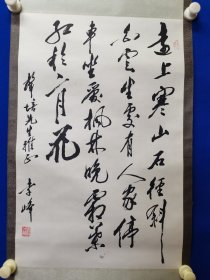 远上寒山石径斜
白云生处有人家停
车坐爱枫林晚霜叶
红于二月花
李峰